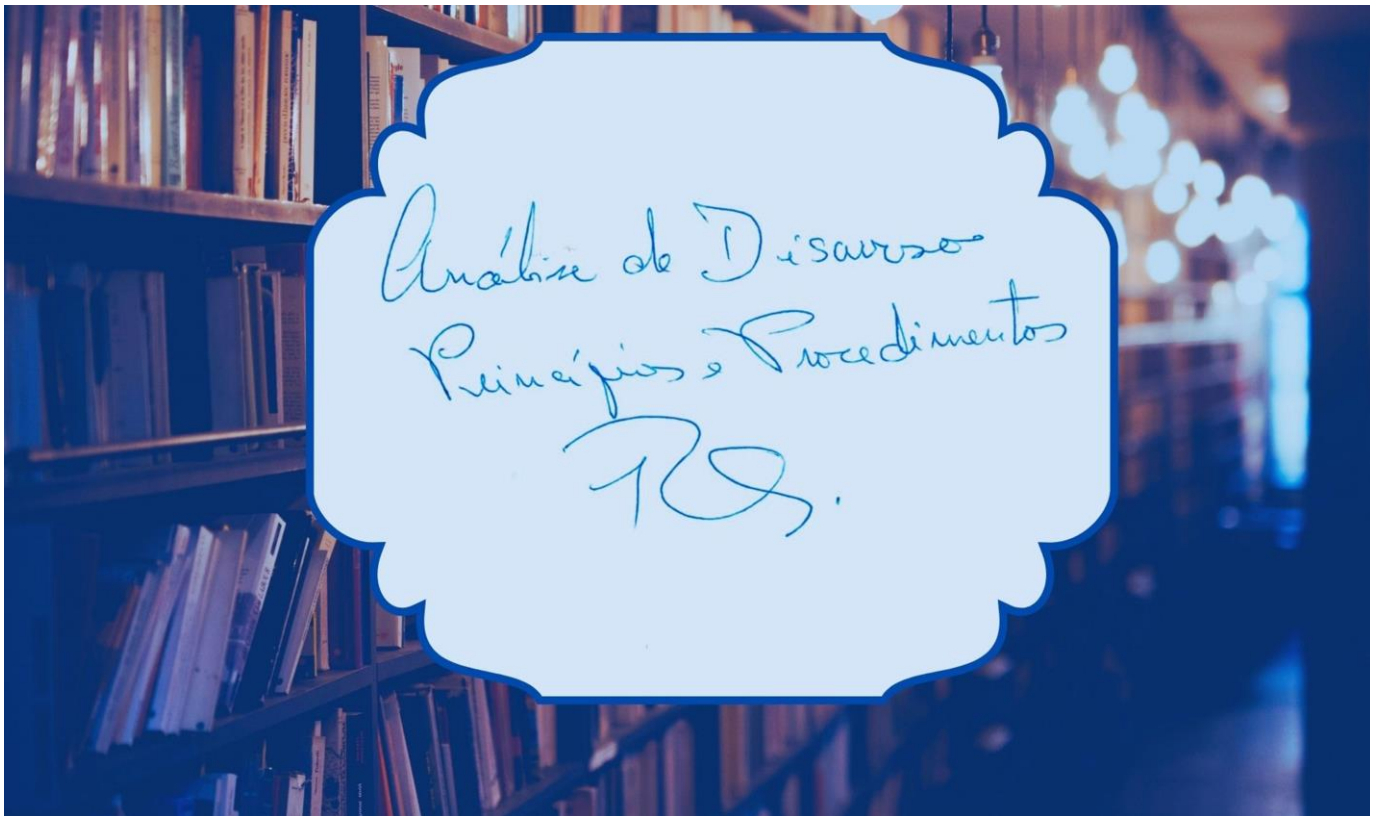 Análise de Discurso
Princípios e Procedimentos